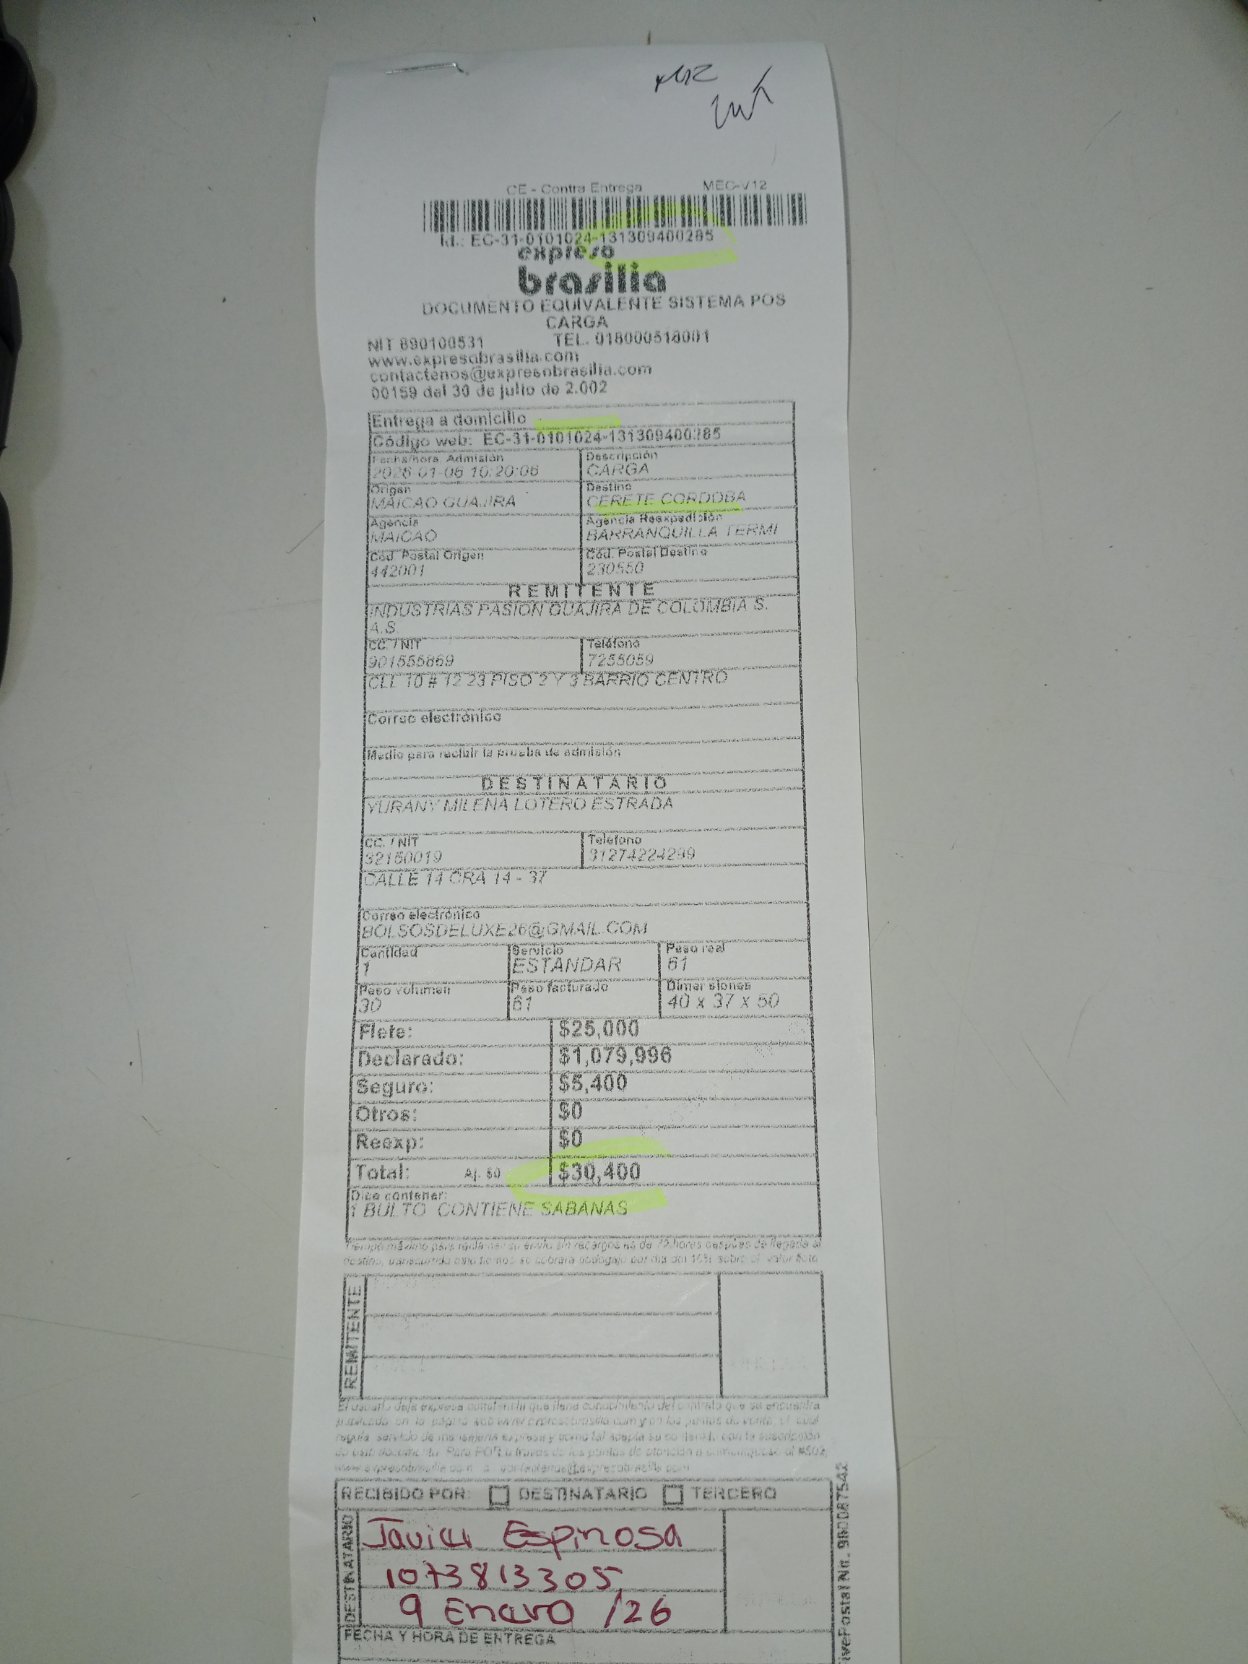 CE - Contra Entrega MEC-V12
Id.: EC-31-0101024-131309400285
expreso
brasilia
DOCUMENTO EQUIVALENTE SISTEMA POS
CARGA
NIT 890100531 TEL. 018000518001
www.expresobrasilia.com
contactenos@expresobrasilia.com
00159 del 30 de julio de 2.002
Entrega a domicilio
Código web: EC-31-0101024-131309400285
Fecha/hora Admisión Descripción
2026-01-06 10:20:06 CARGA
Origen Destino
MAICAO GUAJIRA CERETE CORDOBA
Agencia Agencia Reexpedición
MAICAO BARRANQUILLA TERMI
Cód. Postal Origen Cód. Postal Destino
442001 230550
REMITENTE
INDUSTRIAS PASION GUAJIRA DE COLOMBIA S.
A.S.
CC. / NIT Teléfono
901555869 7255059
CLL 10 # 12 23 PISO 2 Y 3 BARRIO CENTRO
Correo electrónico
Medio para recibir la prueba de admisión
DESTINATARIO
YURANY MILENA LOTERO ESTRADA
CC. / NIT Teléfono
32150019 31274224299
CALLE 14 CRA 14 - 37
Correo electrónico
BOLSOSDELUXE26@GMAIL.COM
Cantidad Servicio Peso real
1 ESTANDAR 61
Peso volumen Peso facturado Dimensiones
30 61 40 x 37 x 50
Flete: $25,000
Declarado: $1,079,996
Seguro: $5,400
Otros: $0
Reexp: $0
Total: Aj. $0 $30,400
Dice contener:
1 BULTO CONTIENE SABANAS
Tiempo máximo para reclamar su envío sin recargos es de 72 horas después de llegada al
destino, transcurrido este tiempo se cobrará bodegaje por día del 10% sobre el valor flete
REMITENTE
RECIBIDO POR: DESTINATARIO TERCERO
DESTINATARIO
Javier Espinosa
1073813305
9 Enero /26
FECHA Y HORA DE ENTREGA